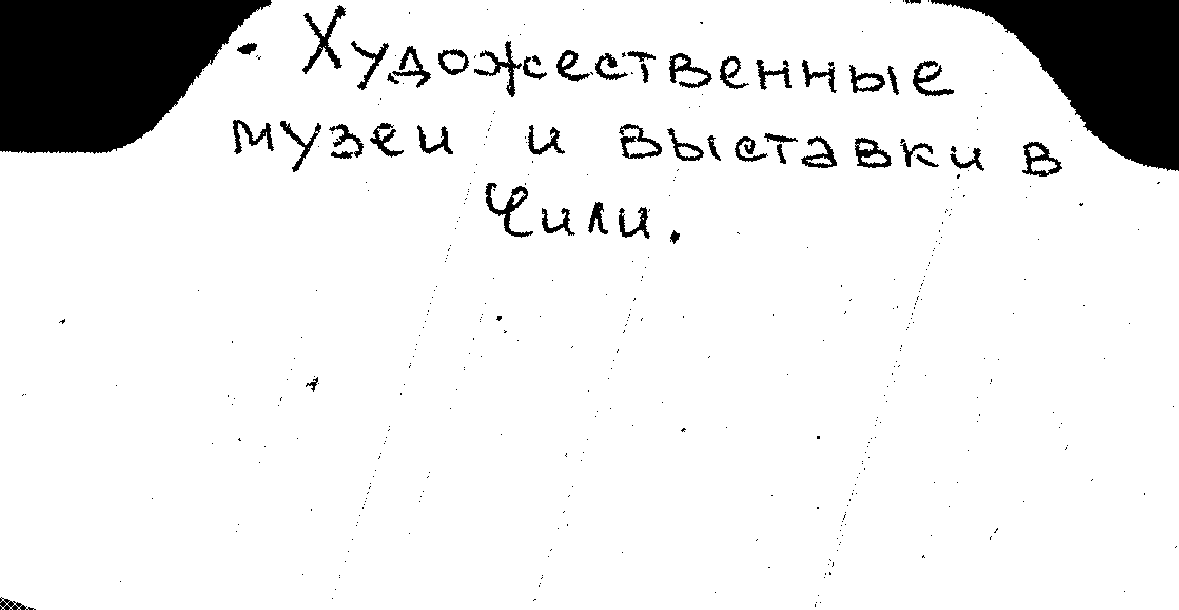 - Художественные
музеи и выставки в
Чили.